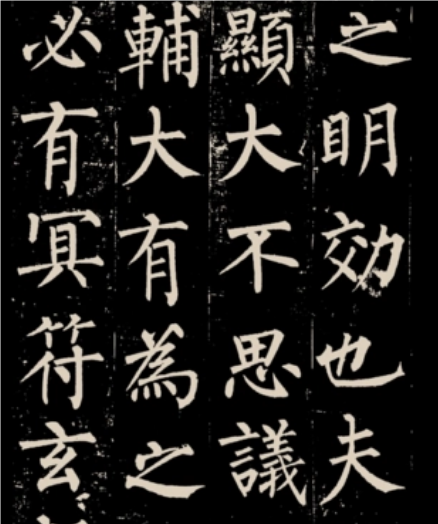 之眀効也夫
顯大不思議
輔大有為之
必有冥符玄